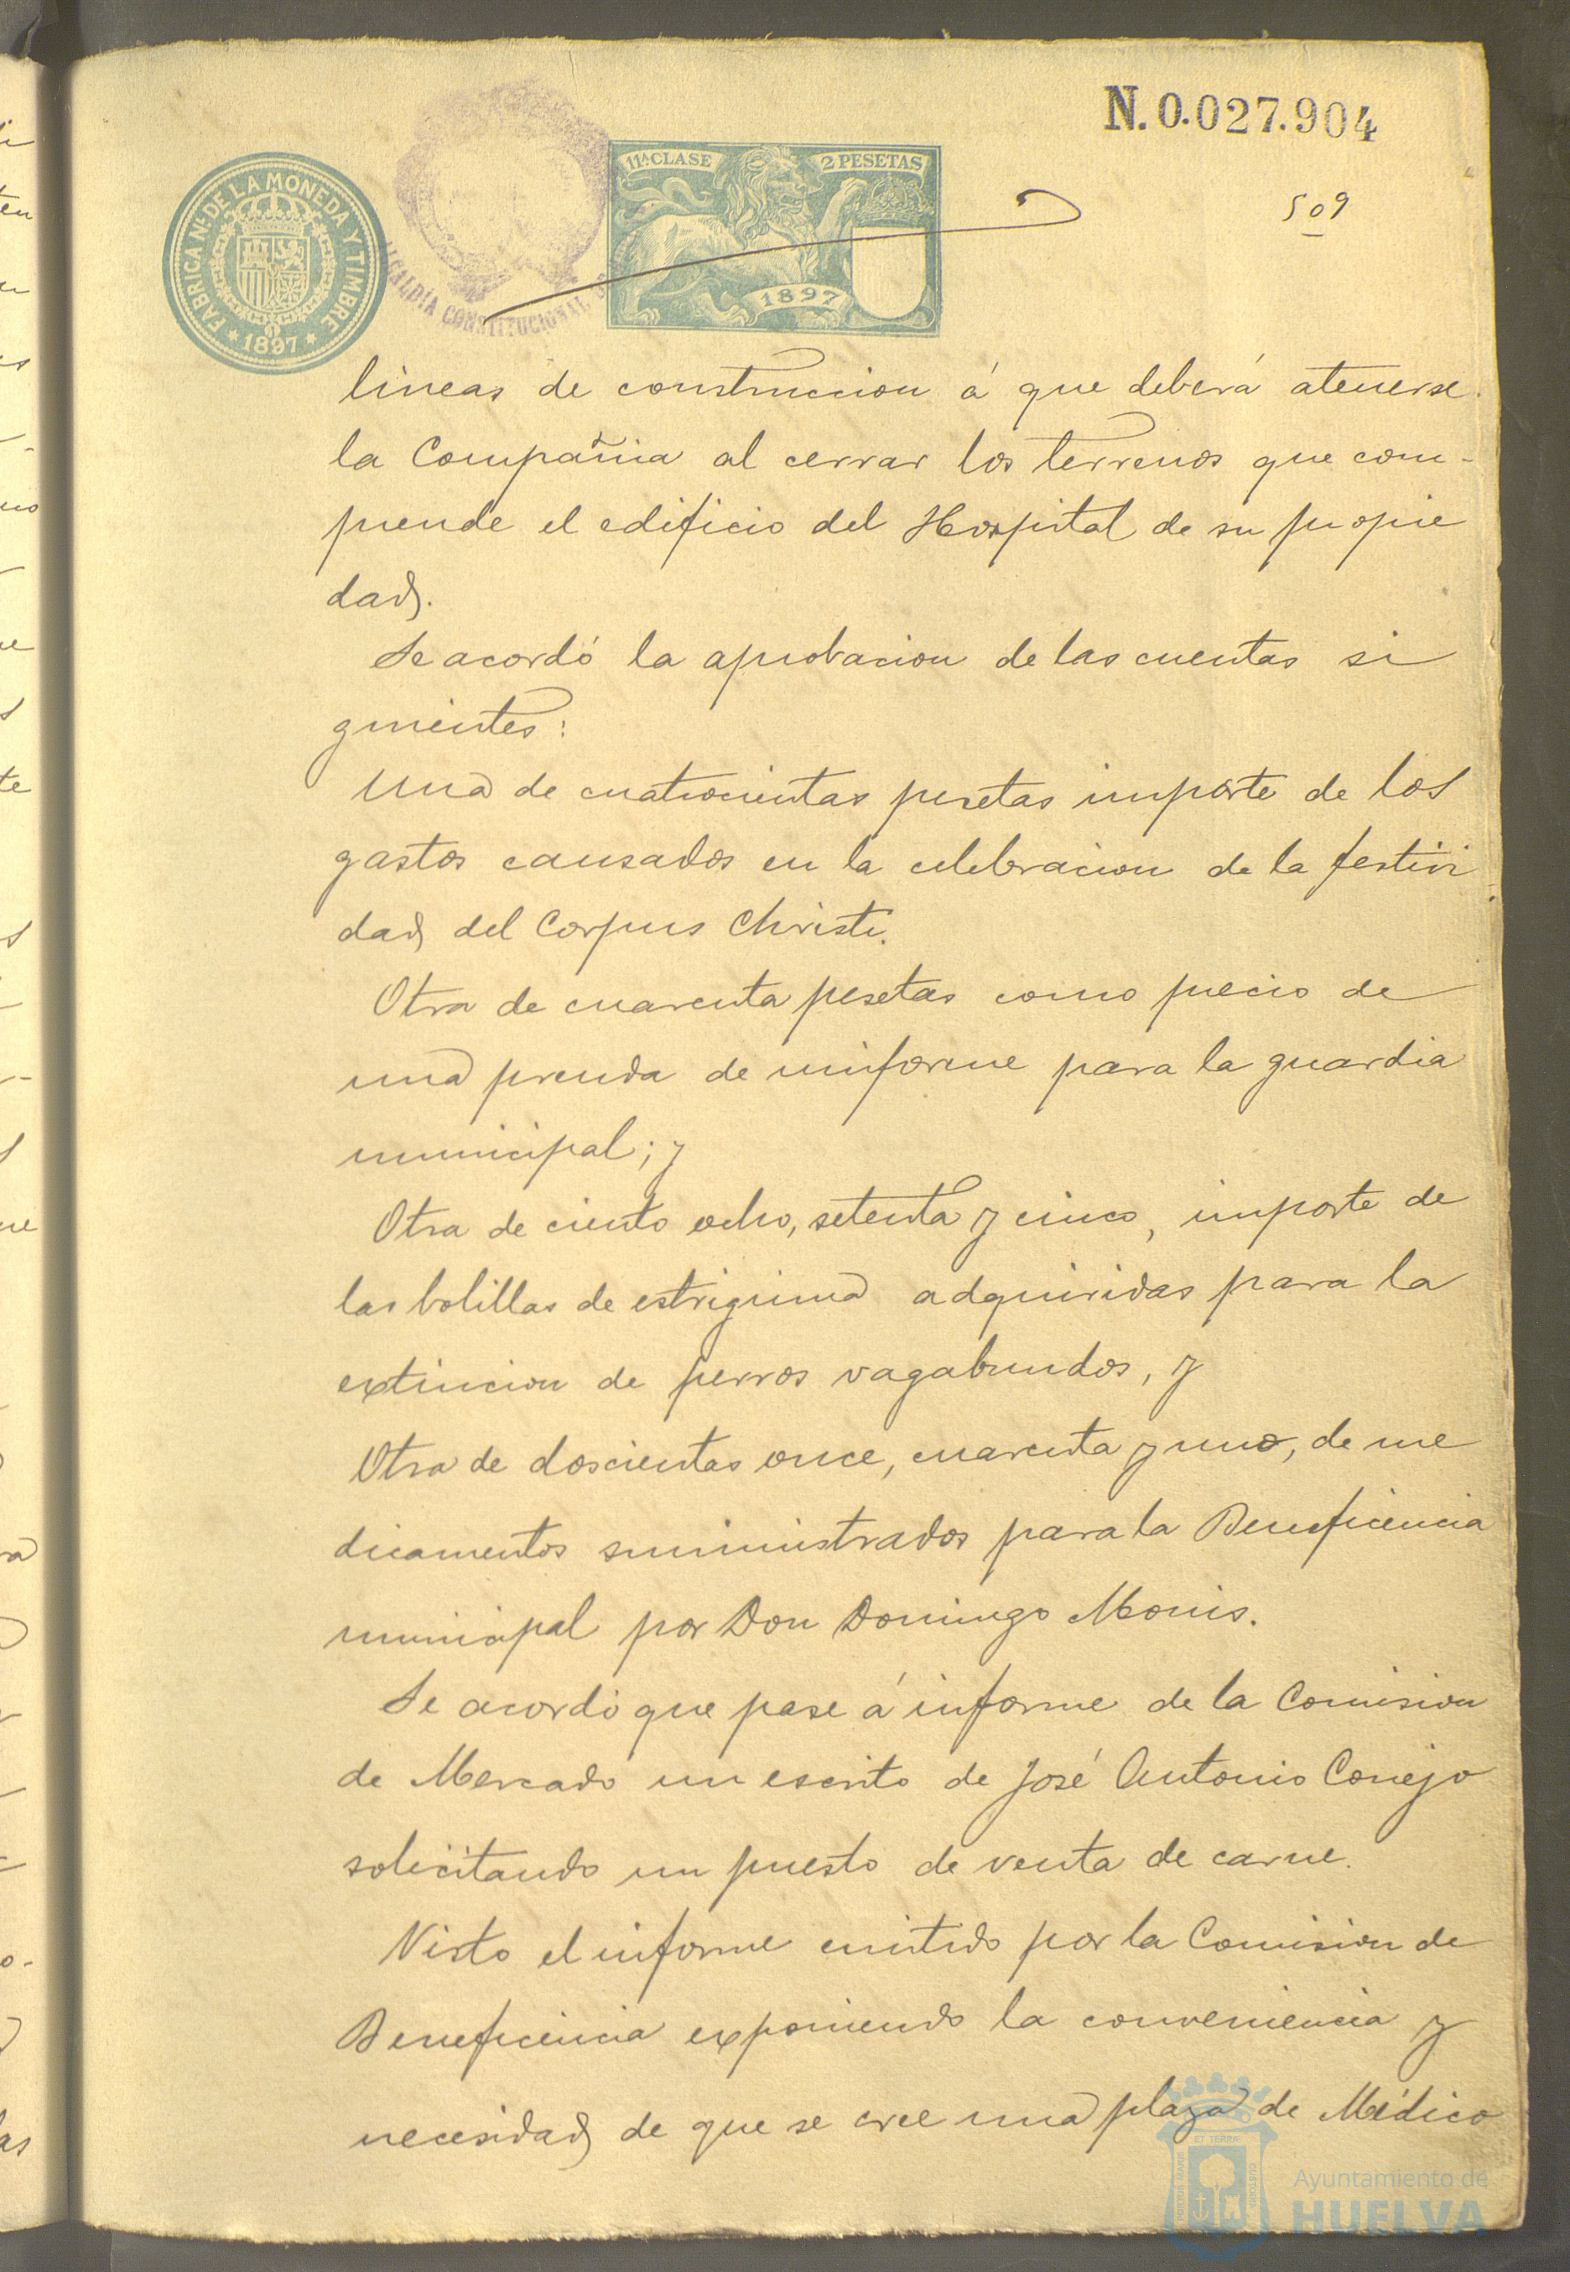 N. 0.027.904
509
FABRICA NAL. DE LA MONEDA Y TIMBRE
* 1897 *
ALCALDIA CONSTITUCIONAL
11ª CLASE 2 PESETAS
1897
lineas de construccion á que deberá atenerse
la Compañia al cerrar los terrenos que com-
prende el edificio del Hospital de su propie
dad.
Se acordó la aprobacion de las cuentas si
guientes:
Una de cuatrocientas pesetas importe de los
gastos causados en la celebracion de la festivi
dad del Corpus Christi.
Otra de cuarenta pesetas como precio de
una prenda de uniforme para la guardia
municipal; y
Otra de ciento ocho, setenta y cinco, importe de
las bolillas de estriguina adquiridas para la
extincion de perros vagabundos, y
Otra de doscientas once, cuarenta y uno, de me
dicamentos suministrados para la Beneficencia
municipal por Don Domingo Monis.
Se acordó que pase á informe de la Comision
de Mercado un escrito de José Antonio Conejo
solicitando un puesto de venta de carne.
Visto el informe emitido por la Comision de
Beneficencia exponiendo la conveniencia y
necesidad de que se cree una plaza de Médico
Ayuntamiento de
HUELVA